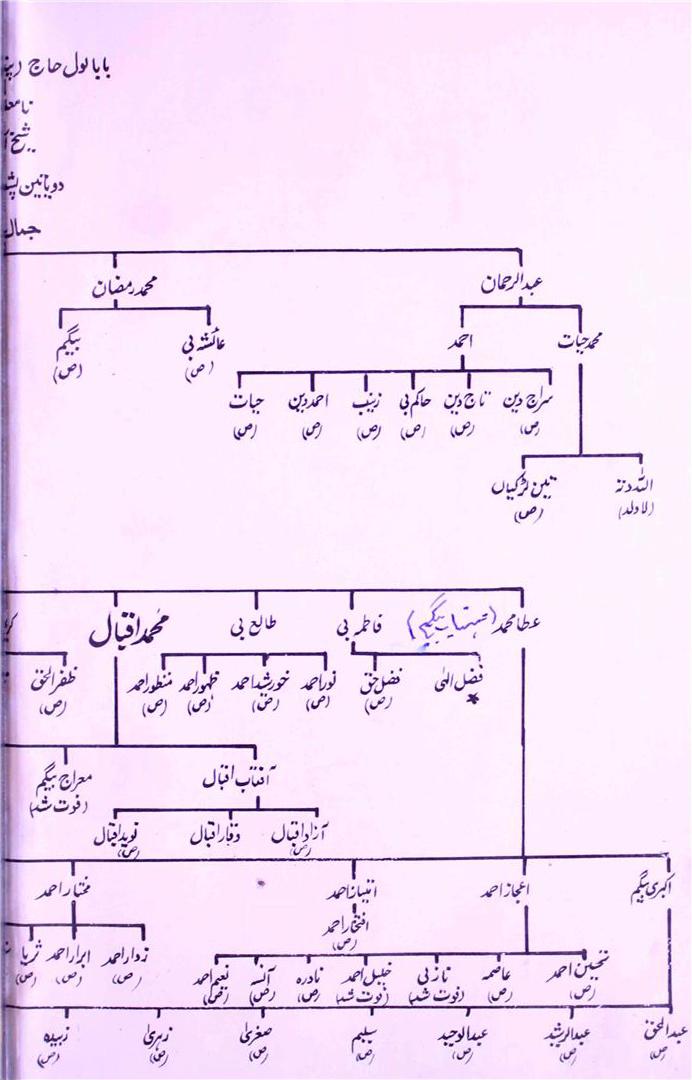 بابا لول حاج
شیخ
جمال
عبدالرحمان محمد رمضان
محمد حیات احمد عائشہ بی بیگم
(ص) (ص)
سراج دین تاج دین حاکم بی زینب احمد دین حیات
(ص) (ص) (ص) (ص) (ص) (ص)
اللہ دتہ تین لڑکیاں
(لا ولد) (ص)
عطا محمد فاطمہ بی طالع بی محمد اقبال
فضل الٰہی فضل حق نور احمد خورشید احمد ظہور احمد منظور احمد ظفر الحق
* (ص) (ص) (ص) (ص) (ص) (ص)
آفتاب اقبال معراج بیگم
(فوت شد)
آزاد اقبال وقار اقبال نوید اقبال
(ص) (ص)
اکبری بیگم اعجاز احمد امتیاز احمد مختار احمد
افتخار احمد
(ص)
زوار احمد ابرار احمد ثریا
(ص) (ص) (ص)
تحسین احمد عاصمہ نازبی خلیل احمد نادرہ آنسہ نعیم احمد
(ص) (ص) (فوت شد) (فوت شد) (ص) (ص) (ص)
عبدالحق عبدالرشید عبدالوحید سلیم صغریٰ زہریٰ زبیدہ
(ص) (ص) (ص) (ص) (ص) (ص) (ص)